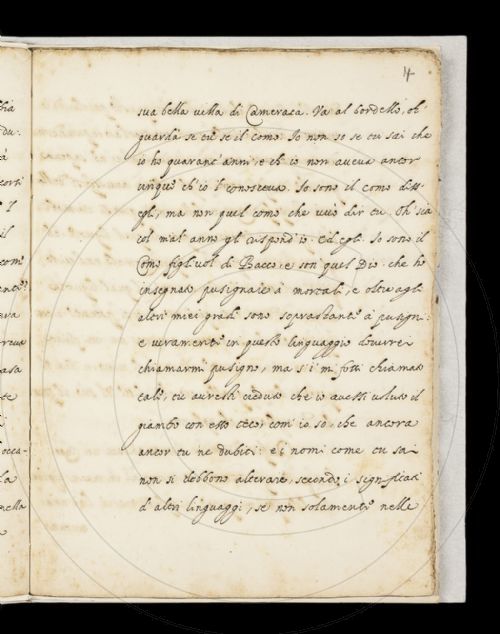 4
sua bella villa di Camerata. Va al bordello, oh
guarda se tu se il como. Io non so se tu sai che
io ho quarant'anni, e ch'io non aveva ancor
ch'io l conosceva. Io sono il como diss-
egli, ma non quel como che vuo dir tu. Oh sia
col mal anno gli rispond'io. Ed egli. Io sono il
Como figliuol di Bacco, e son quel Dio che ho
insegnato pusignare à mortali, e oltre agli
altri miei gradi sono soprastante à pusigni:
e veramente in questo linguaggio dovrei
chiamarmi pusigno, ma s'i m fossi chiamato
tale, tu avresti creduto che io avessi voluto il
giambo con esso teco, com'io so, che ancora
ancor tu ne dubiti: e i nomi come tu sai
non si debbono alterare, secondo i significati
d'altri linguaggi, se non solamente nelle
hia
du:
à
corti
I
il
com
ava
asa
te
è
occa-
la
nella